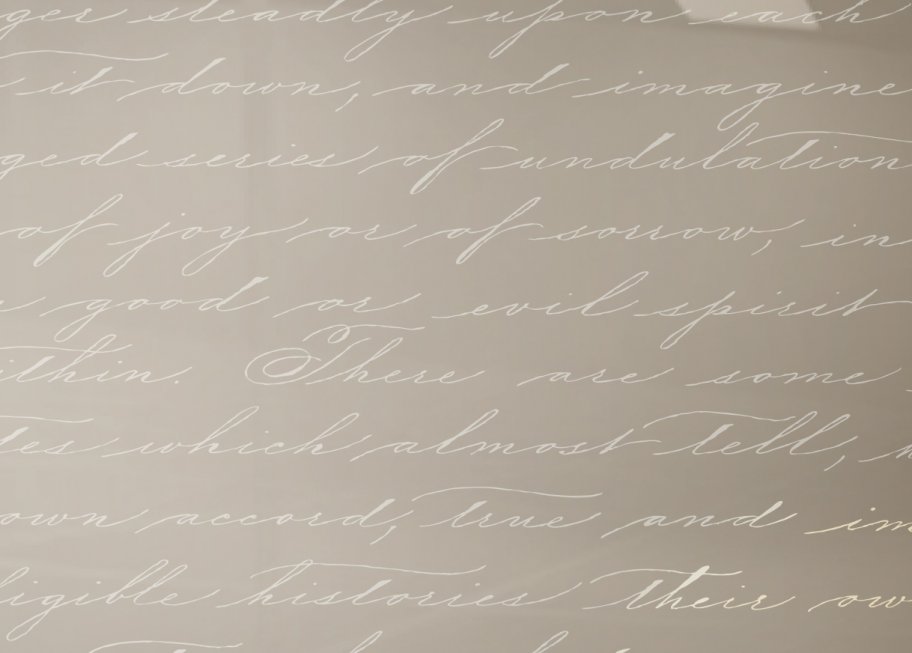 ger steadily upon each
it down, and imagine
ged series of undulation
of joy or of sorrow, in
good or evil spirit
ithin. There are some
es which almost tell,
own accord, true and im
igible histories their ow